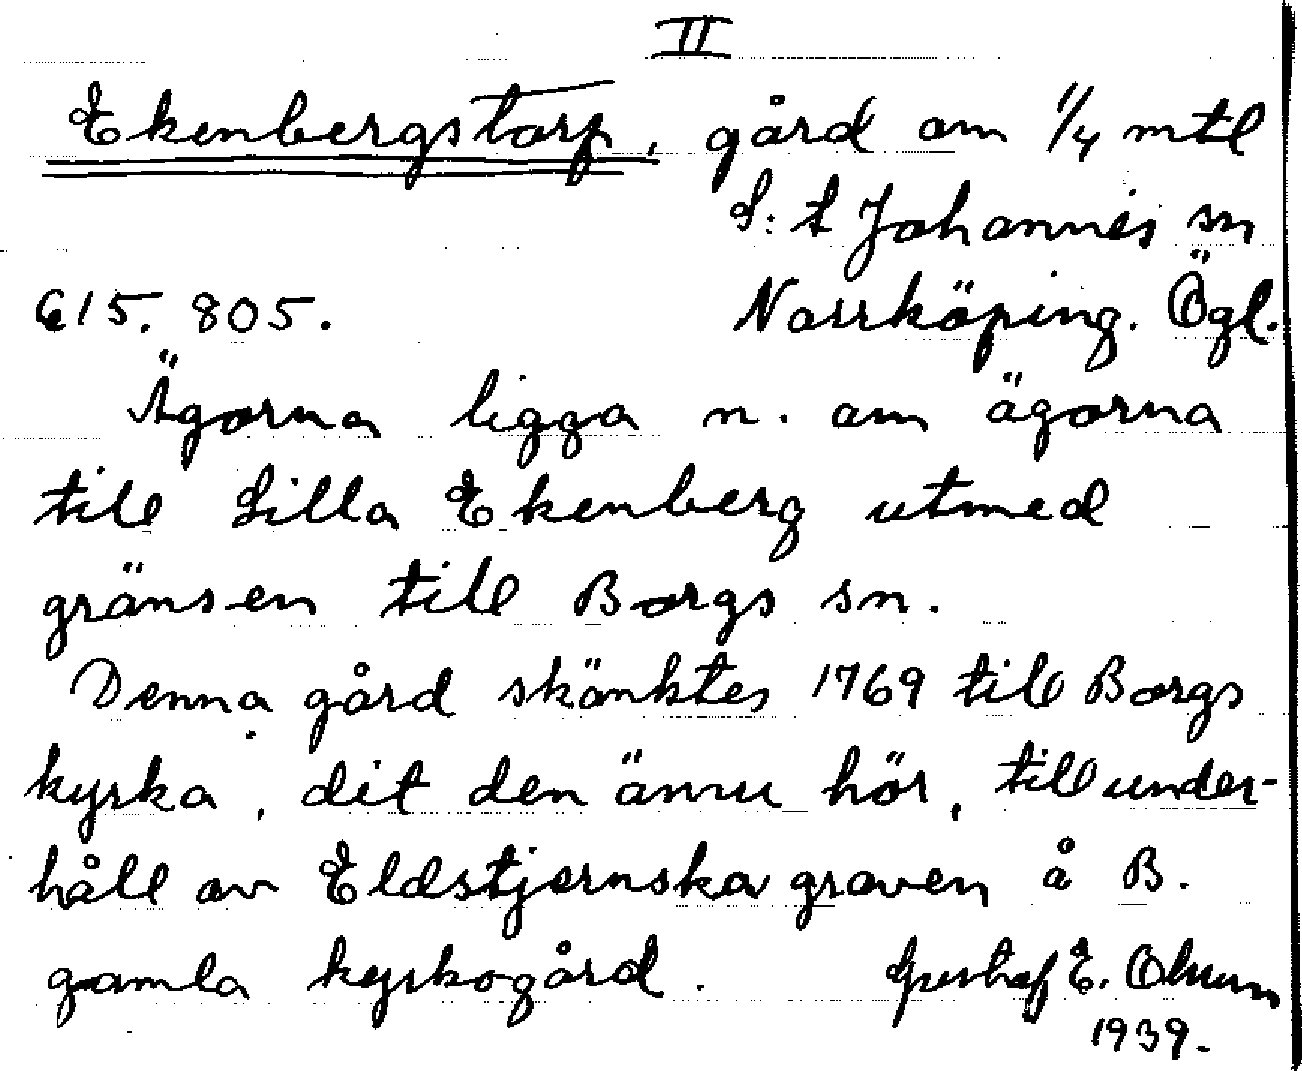 II
Ekenbergstorp, gård om 1/4 mtl
S:t Johannes sn
615. 805. Norrköping. Ögl.
Ägorna ligga n. om ägorna
till Lilla Ekenberg utmed
gränsen till Borgs sn.
Denna gård skänktes 1769 till Borgs
kyrka, dit den ännu hör, till under-
håll av Eldstjernska graven å B.
gamla kyrkogård. Gustaf E. Olsson
1939.